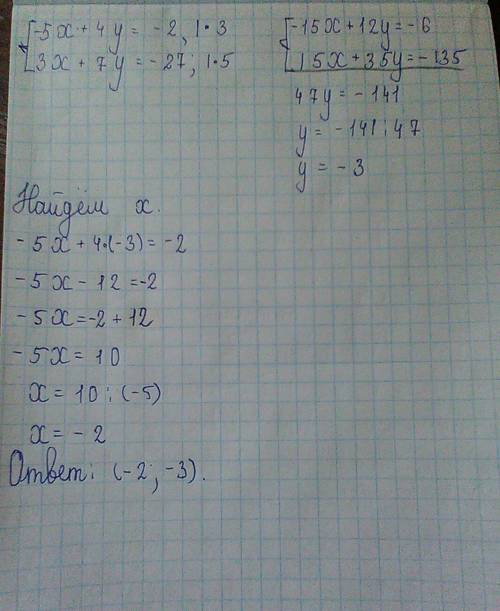 {-5x + 4y = -2, | · 3
{3x + 7y = -27; | · 5
{-15x + 12y = -6
{15x + 35y = -135
47y = -141
y = -141 : 47
y = -3
Найдём x.
-5x + 4·(-3) = -2
-5x - 12 = -2
-5x = -2 + 12
-5x = 10
x = 10 : (-5)
x = -2
Ответ: (-2; -3).